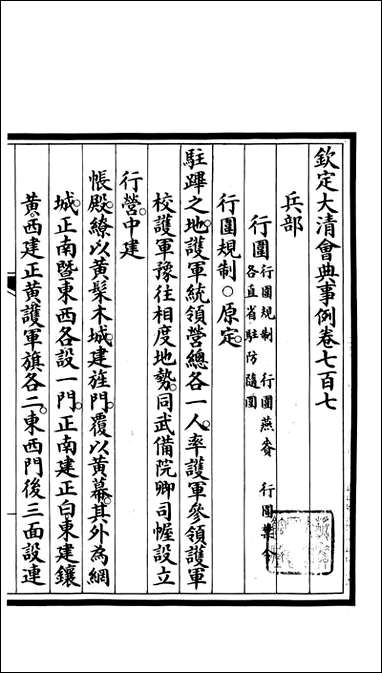 欽定大清會典事例卷七百七
兵部
行圍 行圍規制 行圍燕賚 行圍禁令
各直省駐防隨圍
行圍規制○原定
駐蹕之地。護軍統領營總各一人。率護軍參領護軍
校護軍豫往相度地勢。同武備院卿司幄設立
行營。中建
帳殿。繚以黃髹木城。建旌門。覆以黃幕。其外為網
城。正南暨東西各設一門。正南建正白。東建鑲
黃。西建正黃護軍旗各二。東西門後三面設連